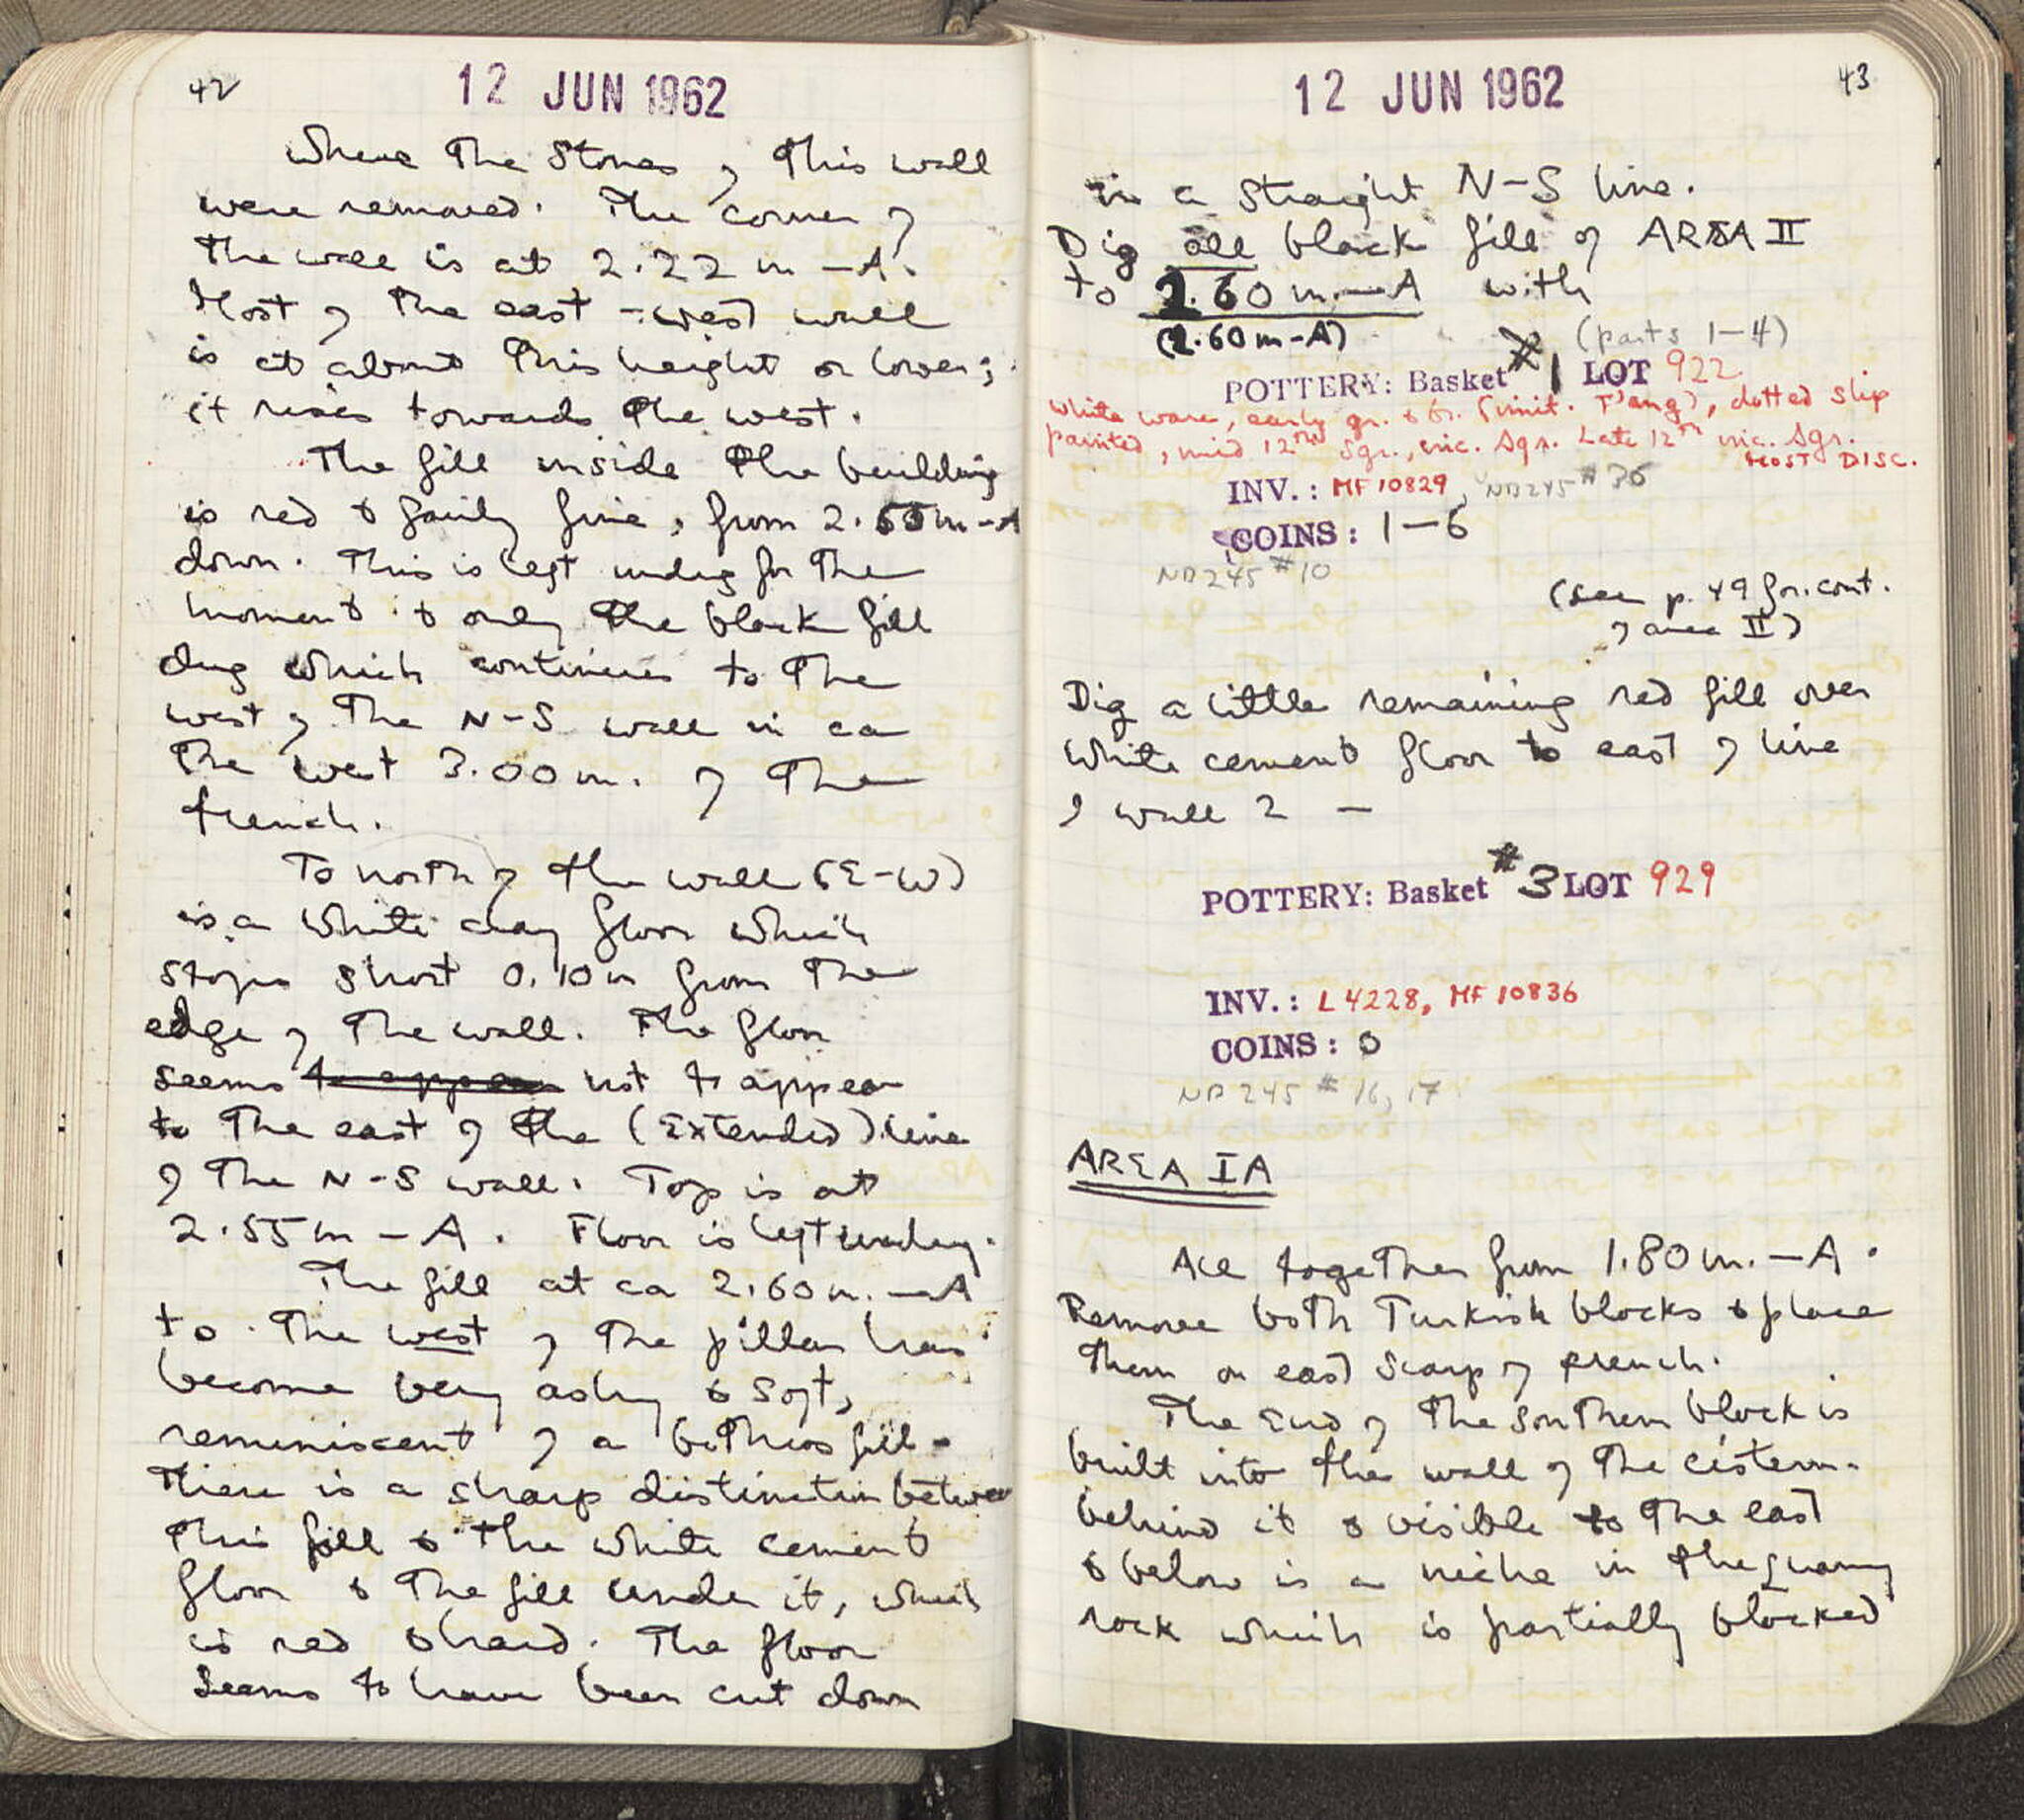 42
12 JUN 1962
Where the stones of this wall
were removed. The corner of
the wall is at 2.22 m -A.
Most of the east-west wall
is at about this height or lower;
it rises towards the west.
The fill inside the building
is red & fairly fine, from 2.55m-A
down. This is left undug for the
moment & only the black fill
dug which continues to the
west of the N-S wall in ca
the west 3.00 m. of the
trench.
To north of the wall (E-W)
is a white clay floor which
stops short 0.10m from the
edge of the wall. The floor
seems to appear not to appear
to the east of the (extended) line
of the N-S wall. Top is at
2.55m - A. Floor is left undug.
The fill at ca 2.60 m. - A
to the west of the pillar has
become very ashy & soft,
reminiscent of a bothros fill -
There is a sharp distinction between
this fill & the white cement
floor & the fill under it, which
is red & hard. The floor
seems to have been cut down
43
12 JUN 1962
in a straight N-S line.
Dig all black fill of AREA II
to 2.60 m. - A with
(2.60 m - A)
(parts 1-4)
POTTERY: Basket #1 LOT 922
White ware, early gr. & br. (imit. T'ang), dotted slip
painted, mid 12th Sgr., inc. Sgr. Late 12th inc. Sgr.
MOST DISC.
INV.: MF 10829, NB245 #36
COINS: 1-6
NB 245 #10
(see p. 49 for cont.
of area II)
Dig a little remaining red fill over
white cement floor to east of line
of wall 2 -
POTTERY: Basket #3 LOT 929
INV.: L 4228, MF 10836
COINS: 0
NB 245 # 16, 17
AREA IA
All together from 1.80 m. - A.
Remove both Turkish blocks & place
them on east scarp of trench.
The end of the southern block is
built into the wall of the cistern.
behind it & visible to the east
& below is a niche in the quarry
rock which is partially blocked